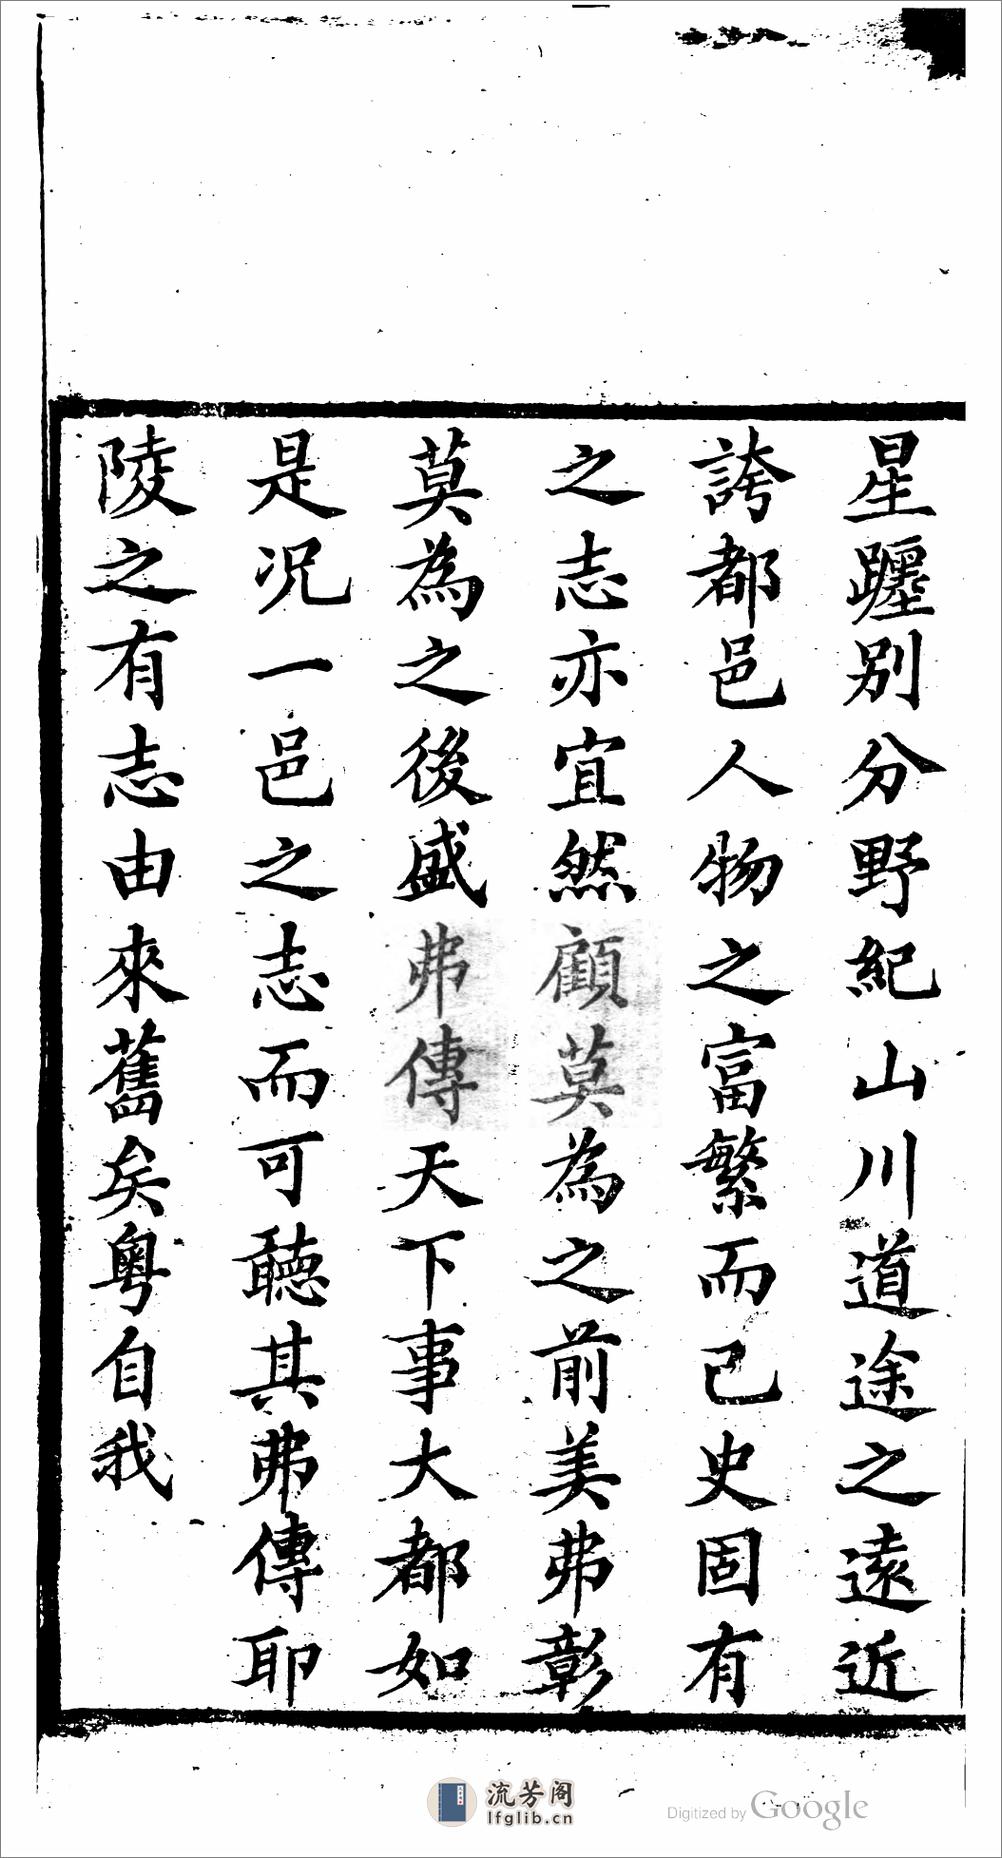 星躔别分野紀山川道途之遠近
誇都邑人物之富繁而已史固有
之志亦宜然顧莫為之前美弗彰
莫為之後盛弗傳天下事大都如
是况一邑之志而可聽其弗傳耶
陵之有志由來舊矣粤自我
流芳阁
lfglib.cn
Digitized by Google